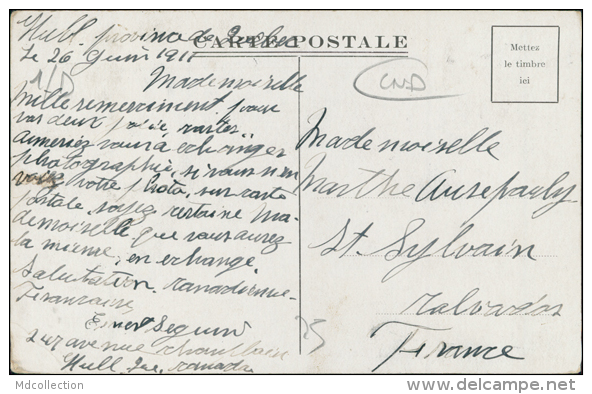 Hull province de Quebec
le 26 Juin 1911
CARTE POSTALE
Mettez
le timbre
ici
1/D
CND
Mademoiselle
mille remerciment pour
vos deux cartes
aimeriez vous à echanger
photographie, si vous
votre photo, sur carte
postale, soyez certaine Ma-
demoiselle que vous aurez
la mienne, en echange,
Salutation Canadienne-
Francaise
Ernest Seguin
247 avenue
Hull Que, Canada
Mademoiselle
Marthe
St. Sylvain
Calvados
France
25
Mdcollection
delcampe.net